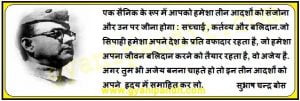 एक सैनिक के रूप में आपको हमेशा तीन आदर्शों को संजोना
और उन पर जीना होगा : सच्चाई, कर्तव्य और बलिदान.जो
सिपाही हमेशा अपने देश के प्रति वफादार रहता है, जो हमेशा
अपना जीवन बलिदान करने को तैयार रहता है, वो अजेय है.
अगर तुम भी अजेय बनना चाहते हो तो इन तीन आदर्शों को
अपने ह्रदय में समाहित कर लो. सुभाष चन्द्र बोस